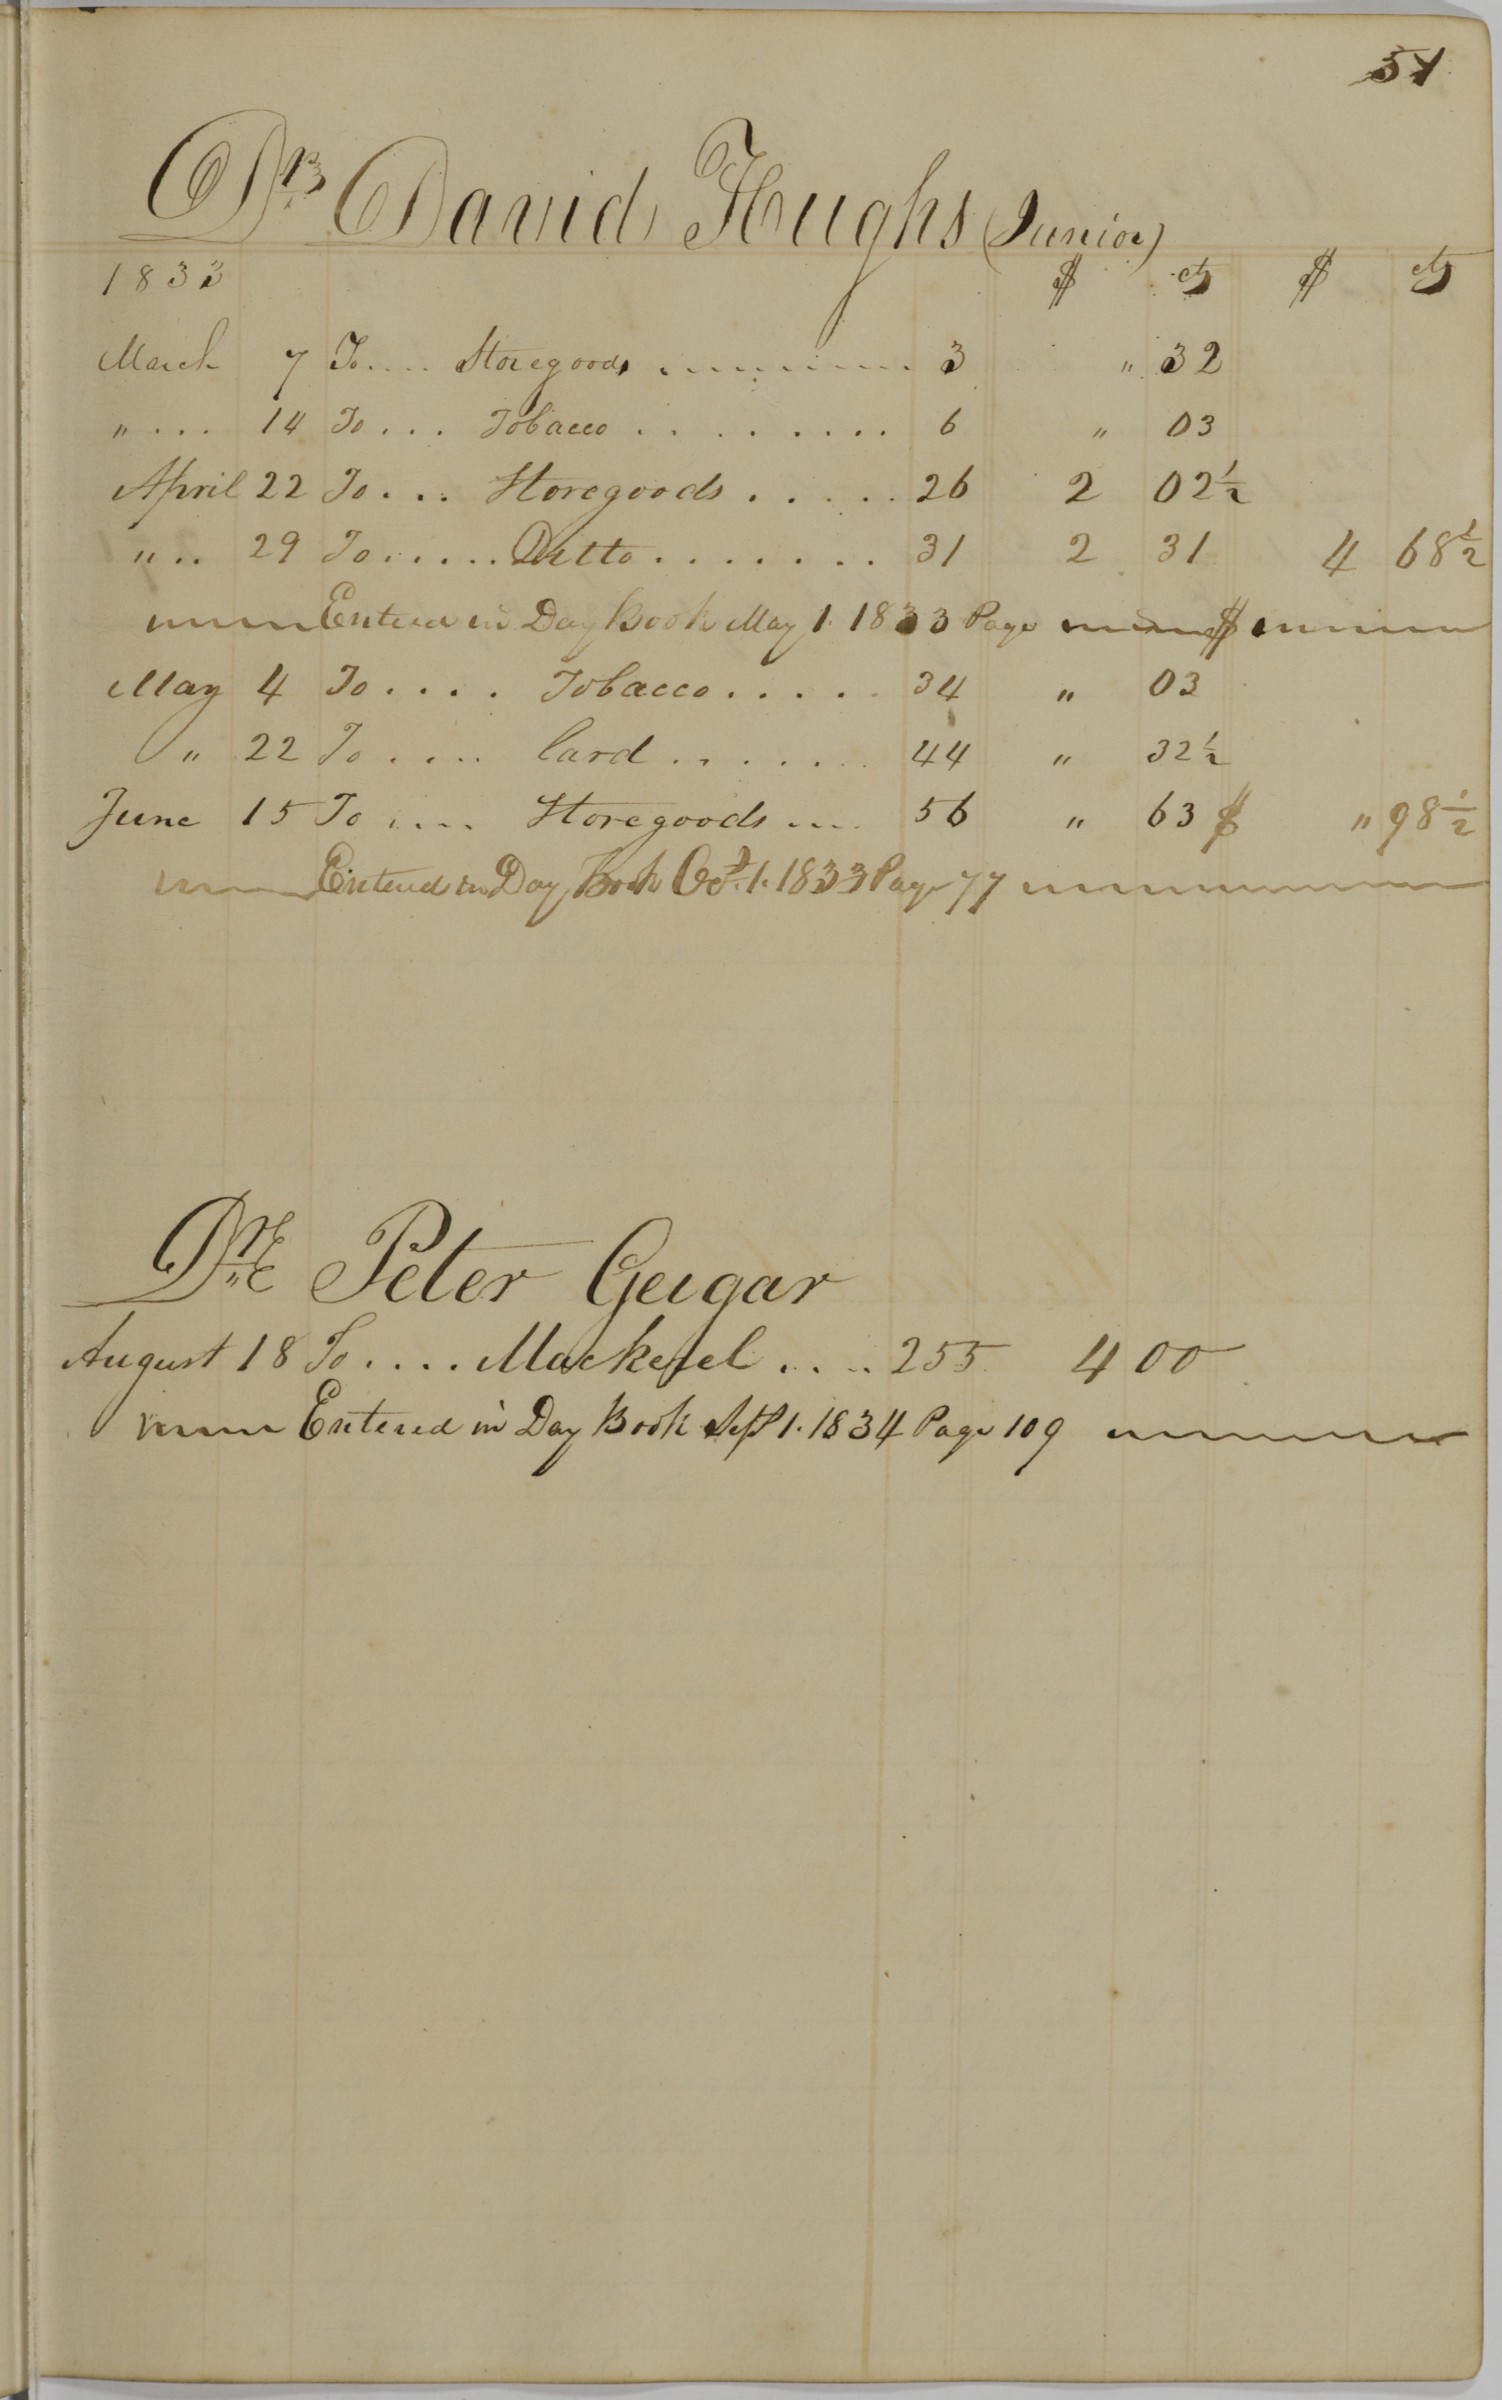 51
Dr. David Hughs (Junior)
1833 $ cts $ cts
March 7 To .... Storegoods ........ 3 " 32
" ... 14 To ... Tobacco ......... 6 " 03
April 22 To ... Storegoods ..... 26 2 02½
" .. 29 To ..... Ditto ....... 31 2 31 4 68½
Entered in Day Book May 1. 1833 Page $
May 4 To .... Tobacco ..... 34 " 03
" 22 To .... Lard ....... 44 " 32½
June 15 To .... Storegoods ... 56 " 63 $ " 98½
Entered in Day Book Oct. 1. 1833 Page 77
Dr. Peter Geigar
August 18 To .... Mackerel .... 255 4 00
Entered in Day Book Sept 1. 1834 Page 109